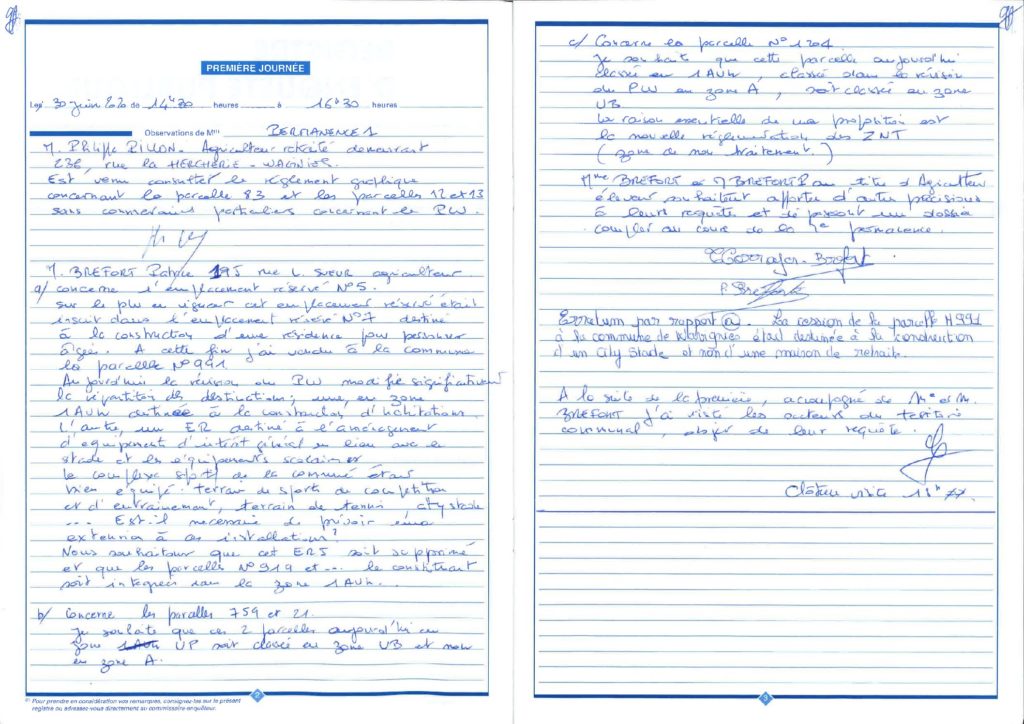 PREMIÈRE JOURNÉE
Les 30 juin 2020 de 14h30 heures à 16h30 heures
Observations de M(1) PERMANENCE 1
M. Philippe Agriculteur retraité demeurant
236, rue la HERCHERIE - WAGNIES.
Est venu consulter le règlement graphique
concernant la parcelle 83 et les parcelles 12 et 13
sans commentaires particuliers concernant le PLU.
M. BREFORT Patrice 195 rue L. SUEUR agriculteur
a/ concerne l'emplacement réservé N°5.
sur le plu en vigueur cet emplacement réservé était
inscrit dans l'emplacement réservé N°7 destiné
à la construction d'une résidence pour personnes
âgées. A cette fin j'ai vendu à la commune
la parcelle N°991
Aujourd'hui la révision du PLU modifie significativement
la répartition des destinations; une, en zone
1AUh destinée à la construction d'habitations.
L'autre, un ER destiné à l'aménagement
d'équipement d'intérêt général en lien avec le
stade et les équipements scolaires
le complexe sportif de la commune étant
bien équipé: terrain de sports de compétition
et d'entraînement, terrain de tennis, city stade
... Est-il nécessaire de prévoir une
extension à ces installations?
Nous souhaitons que cet ER5 soit supprimé
et que les parcelles N°919 et ... le constituant
soit intégrées dans la zone 1AUh...
b/ Concerne les parcelles 759 et 21.
Je souhaite que ces 2 parcelles aujourd'hui en
zone 1AUh UP soit classée en zone UB et non
en zone A.
(1) Pour prendre en considération vos remarques, consignez-les sur le présent
registre ou adressez-vous directement au commissaire-enquêteur.
2
c/ Concerne la parcelle N°1204
Je souhaite que cette parcelle aujourd'hui
classée en 1AUh, classée dans la révision
du PLU en zone A, soit classée en zone
UB
La raison essentielle de ma proposition est
la nouvelle réglementation des ZNT
(zone de non traitement.)
Mme BREFORT et M BREFORT P au titre d'Agriculteur
éleveur souhaitent apporter d'autres précisions
à leurs requêtes et déposeront un dossier
complet au cours de la permanence.
P. Brefort
Erratum par rapport (a). La cession de la parcelle N991
à la commune de Wargnies était destinée à la construction
d'un City Stade et non d'une maison de retraite.
A la suite de la première, accompagné de Me et M.
BREFORT j'ai visité les secteurs du territoire
communal, objet de leur requête.
Clôture visite
3